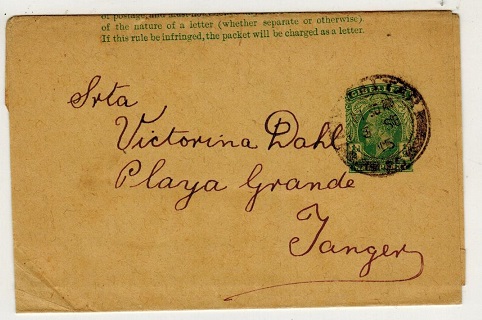 of postage, and must not
of the nature of a letter (whether separate or otherwise).
If this rule be infringed, the packet will be charged as a letter.
GIBRALTAR
Srta
Victorina Dahl
Playa Grande
Tanger